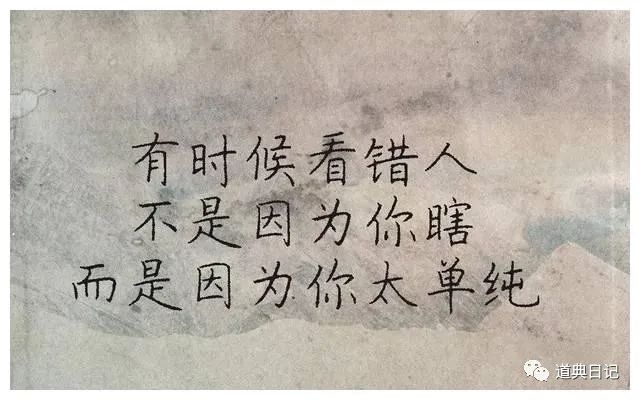 有时候看错人
不是因为你瞎
而是因为你太单纯
道典日记